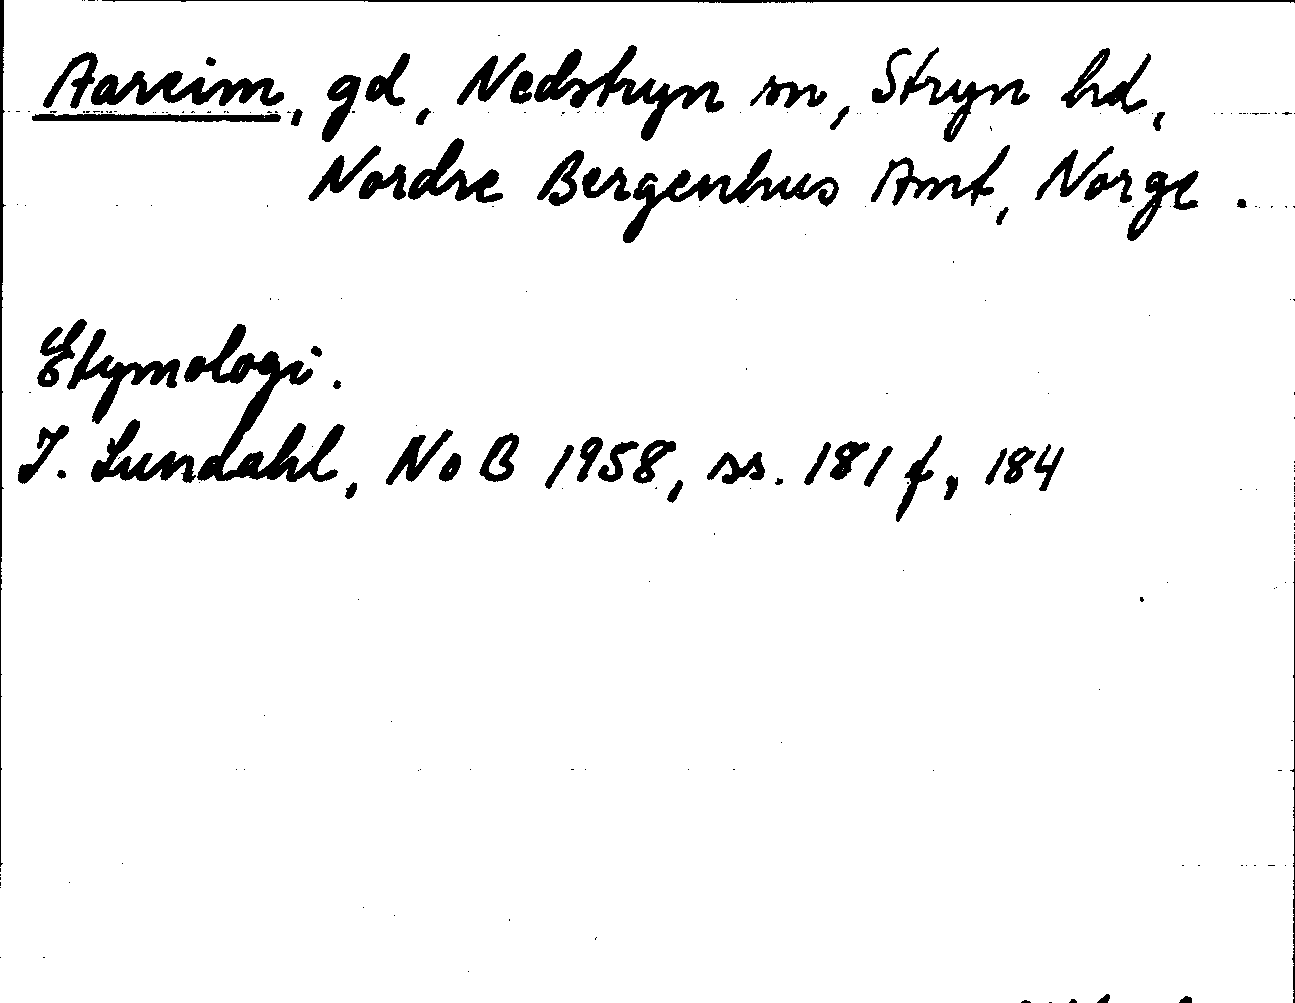 Aareim, gd, Nedstryn sn, Stryn hd,
Nordre Bergenhus Amt, Norge.
Etymologi.
I. Lundahl, NoB 1958, ss. 181 f, 184